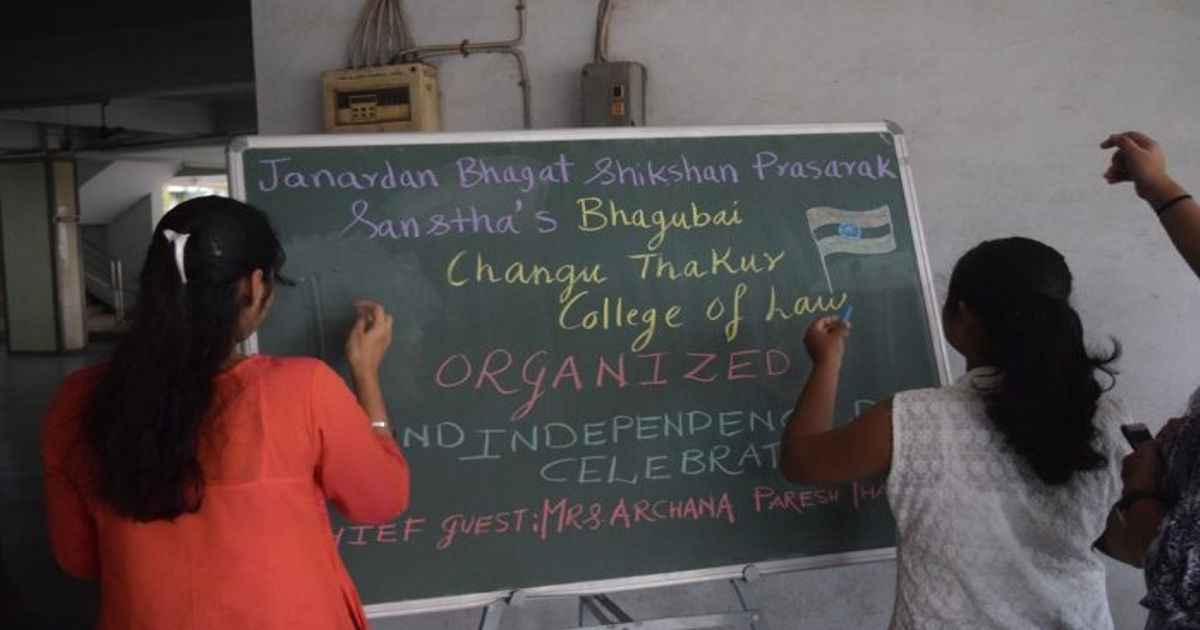 Janardan Bhagat Shikshan Prasarak
Sanstha's Bhagubai
Changu Thakur
College of Law
ORGANIZED
ND INDEPENDENC D
CELEBRAT
HIEF GUEST: MRS ARCHANA PARESH THA